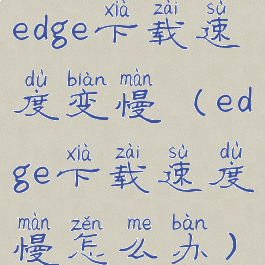 xià zài sù
edge下载速
dù biàn màn
度变慢（ed
xià zài sù dù
ge下载速度
màn zěn me bàn
慢怎么办）